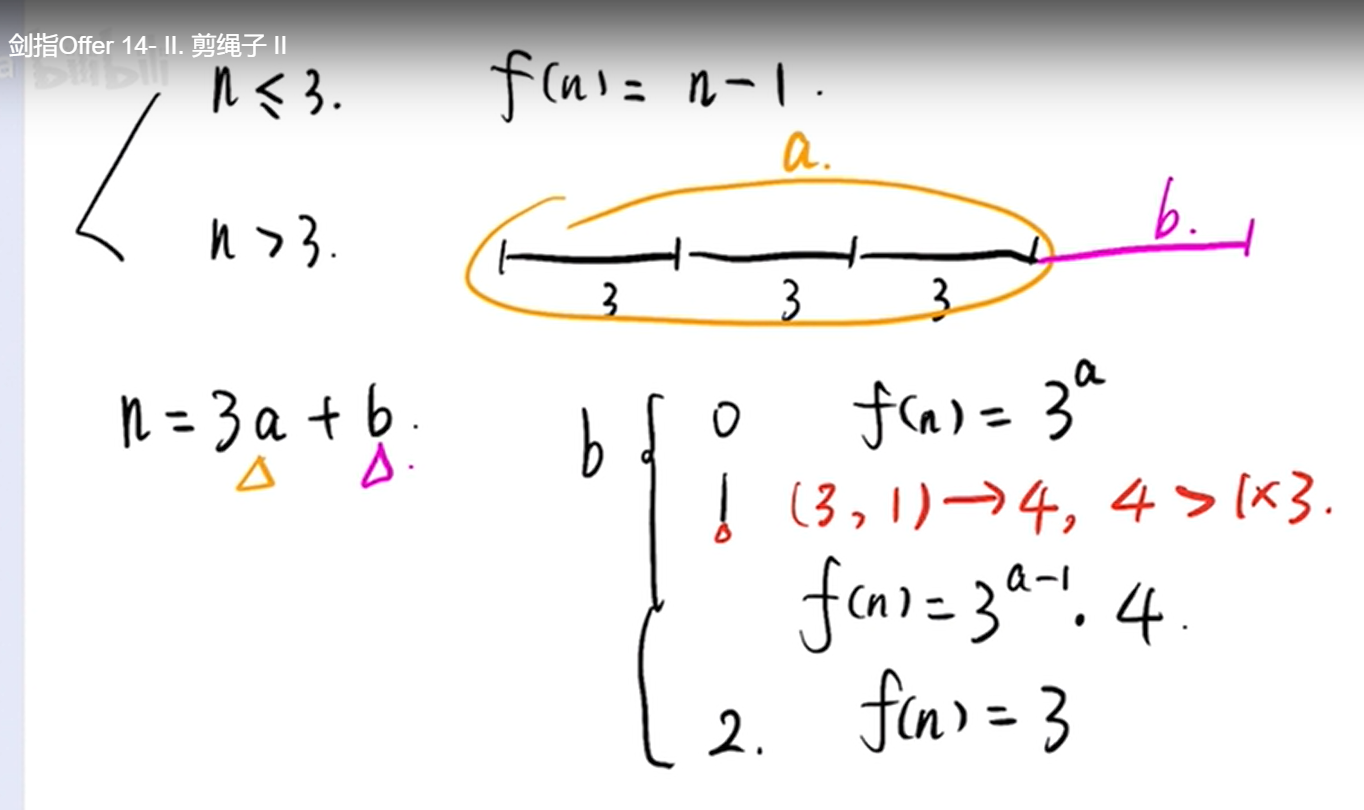 剑指Offer 14- II. 剪绳子 II
bilibili
n ≤ 3. f(n) = n - 1.
a.
n > 3.
b.
3 3 3
n = 3a + b.
b { 0 f(n) = 3^a
1 (3, 1) → 4, 4 > 1×3.
f(n) = 3^{a-1} · 4.
2. f(n) = 3